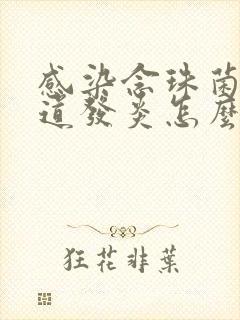 感染念珠菌
道發炎怎麼
狂花非葉